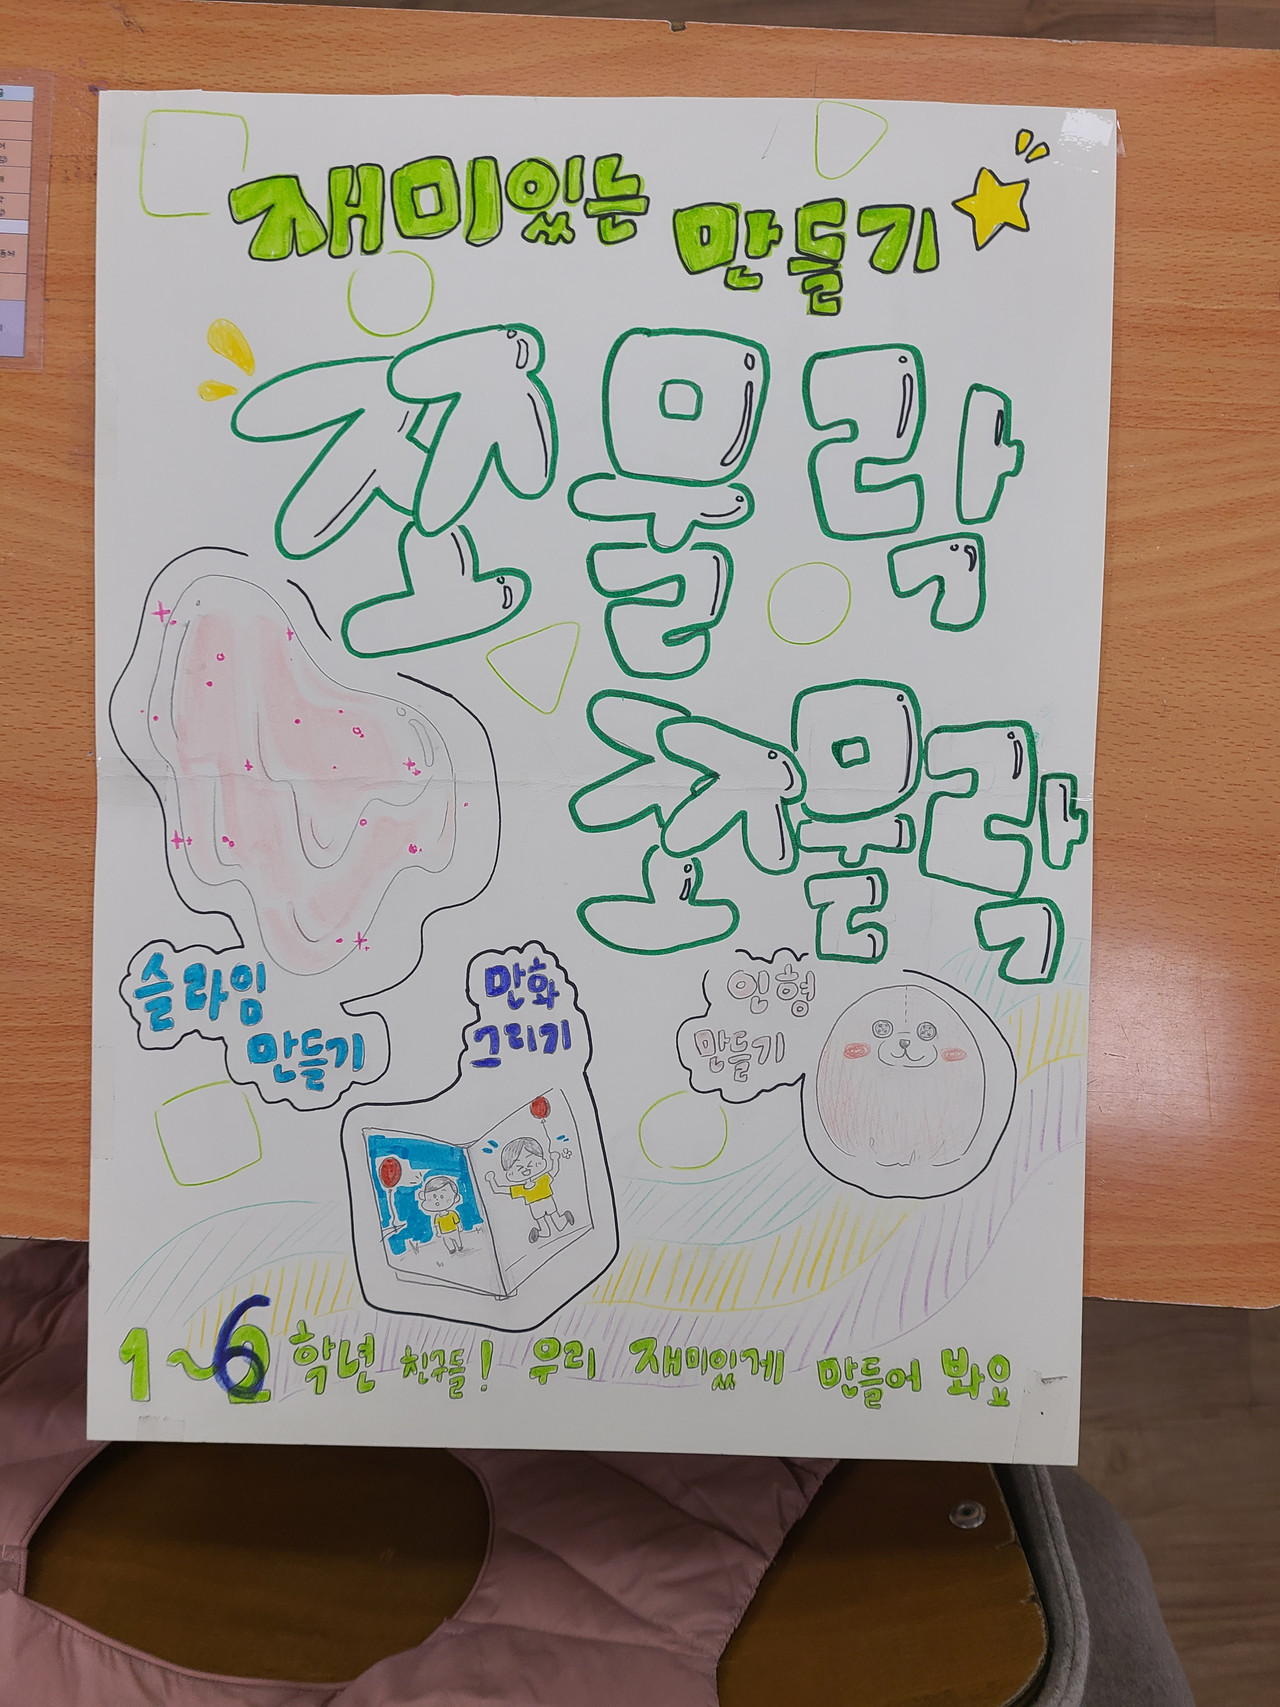 재미있는 만들기
조물락
조물락
슬라임
만들기
만화
그리기
인형
만들기
1~6학년 친구들! 우리 재미있게 만들어 봐요